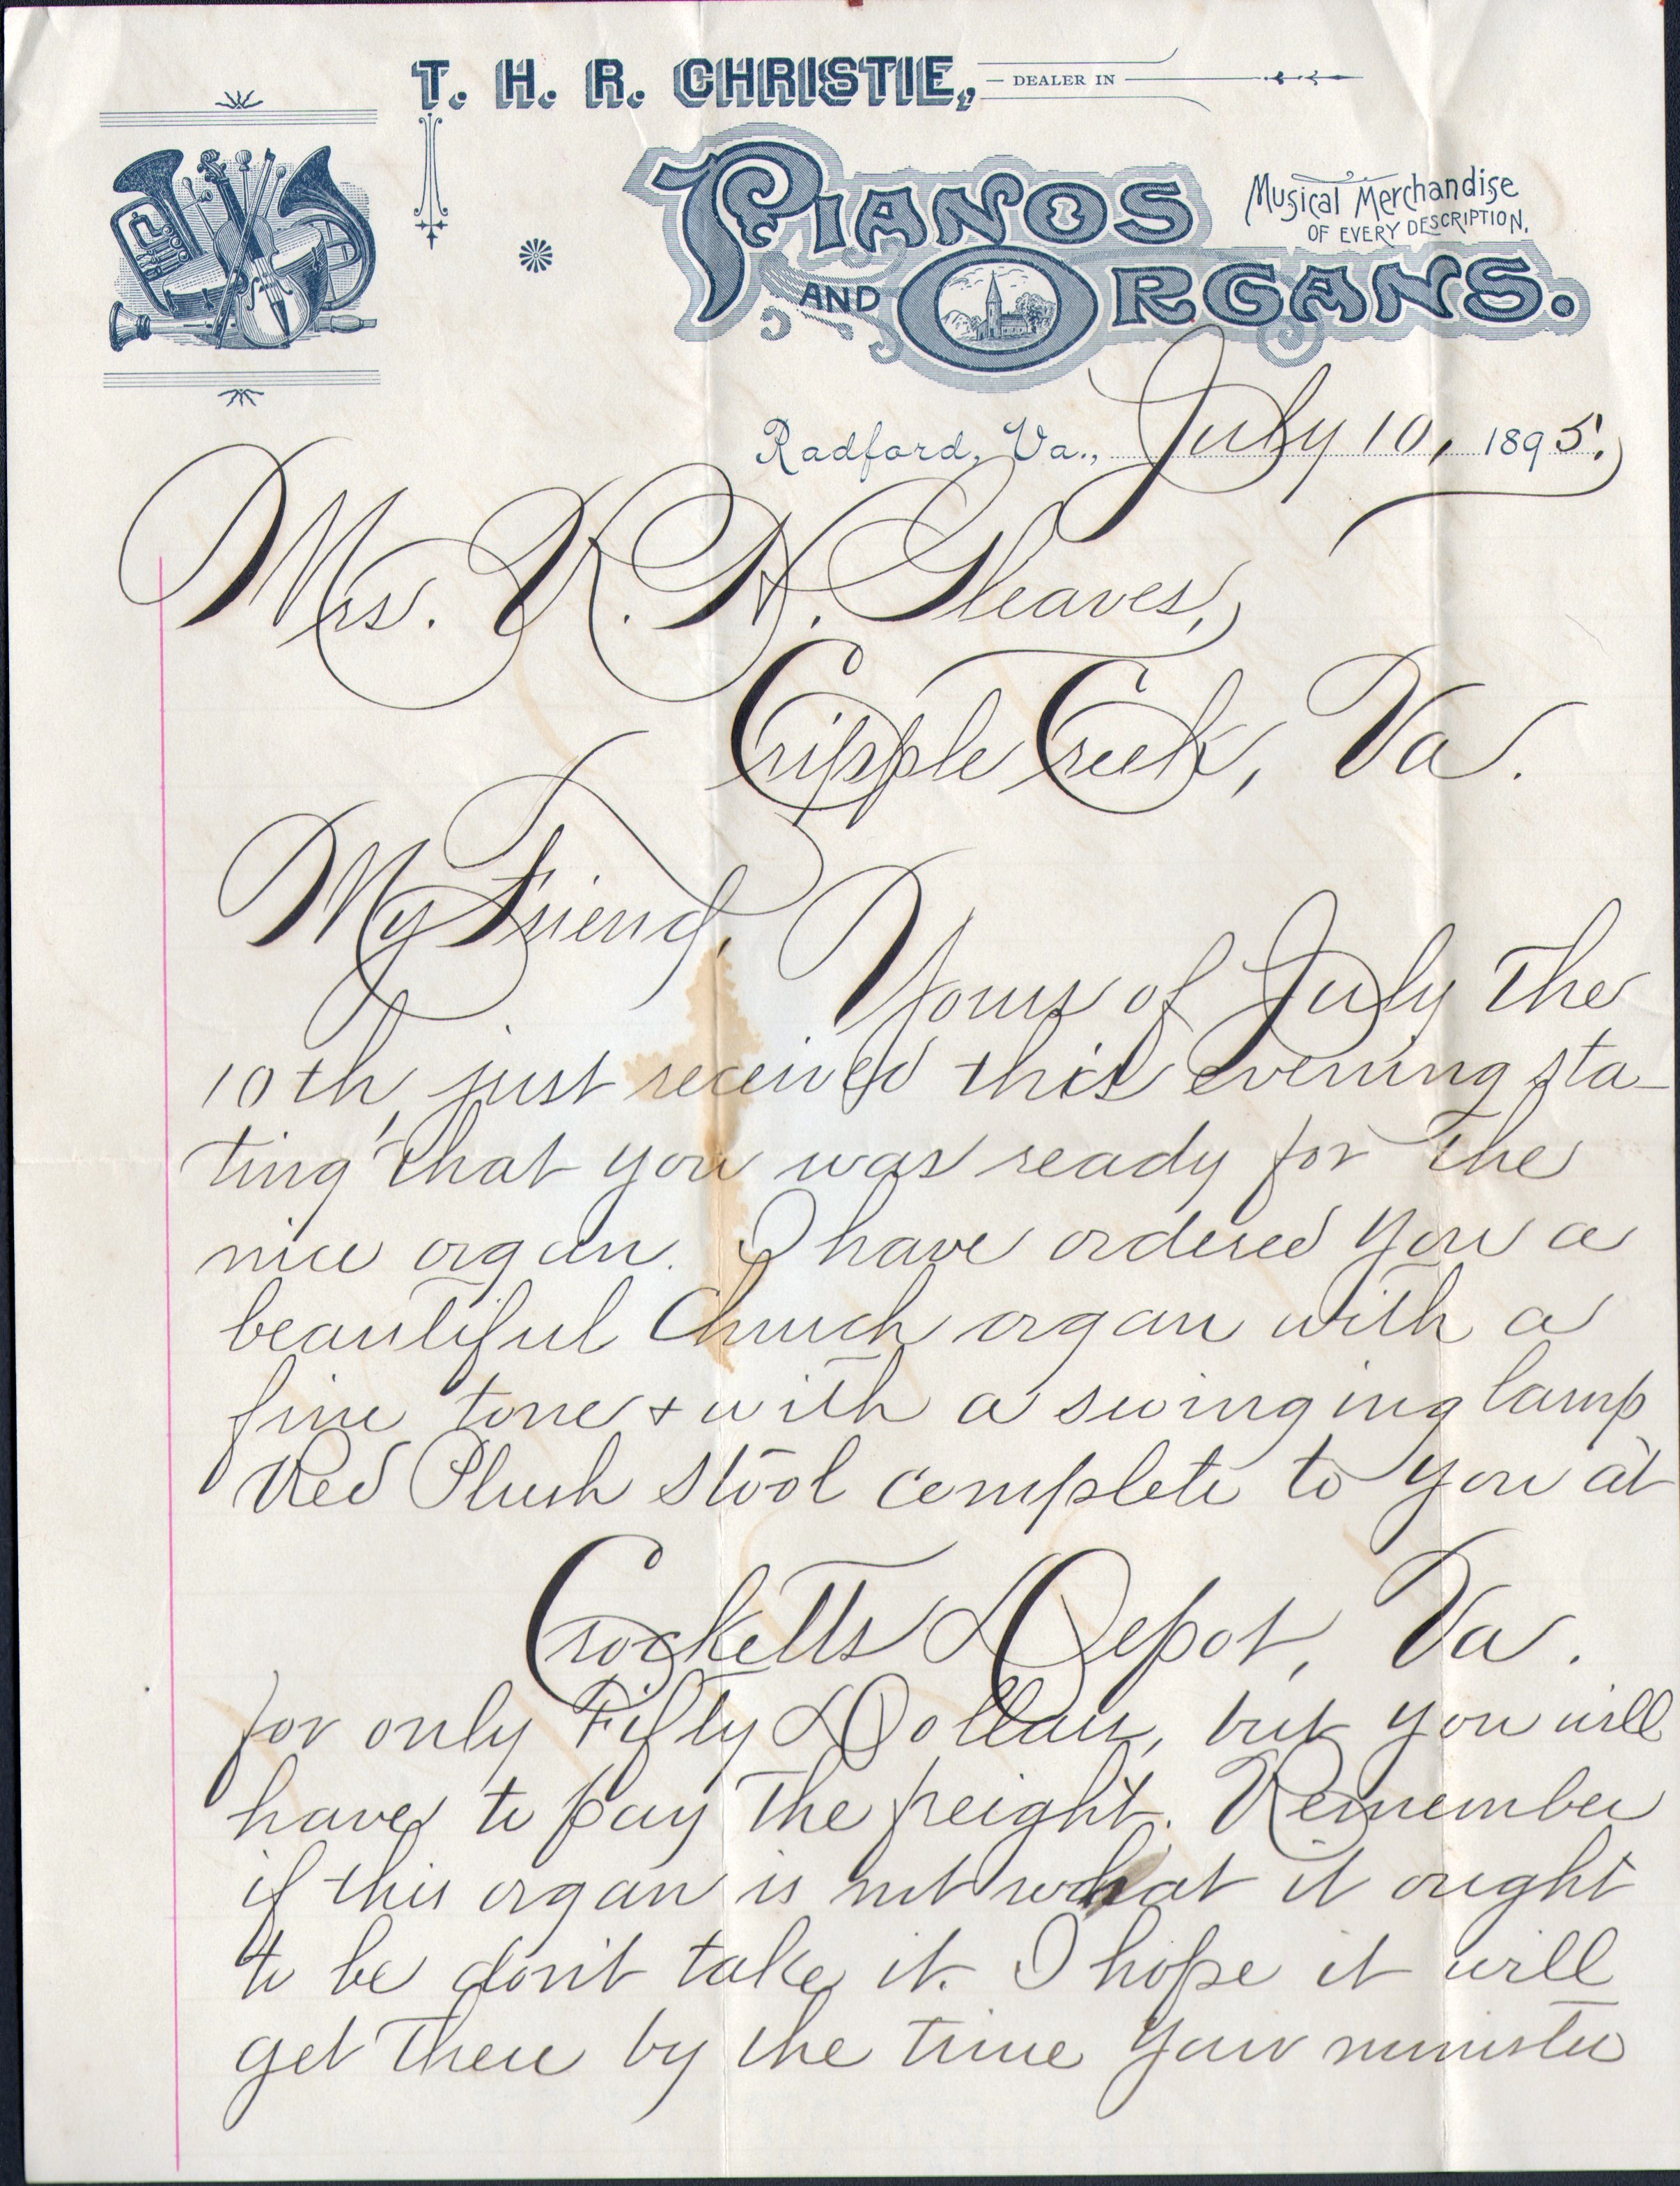 T. H. R. CHRISTIE,
DEALER IN
PIANOS
AND ORGANS.
Musical Merchandise
OF EVERY DESCRIPTION.
Radford, Va., July 10, 1895.
Mrs. K. H. Gleaves,
Cripple Creek, Va.
My Friend,
Yours of July the
10th, just received this evening sta-
ting that you was ready for the
nice organ. I have ordered you a
beautiful Church organ with a
fine tone + with a swinging lamp
Red Plush Stool complete to you at
Crocketts Depot, Va.
for only Fifty Dollars, but you will
have to pay the freight. Remember
if this organ is not what it ought
to be don't take it. I hope it will
get there by the time your minister